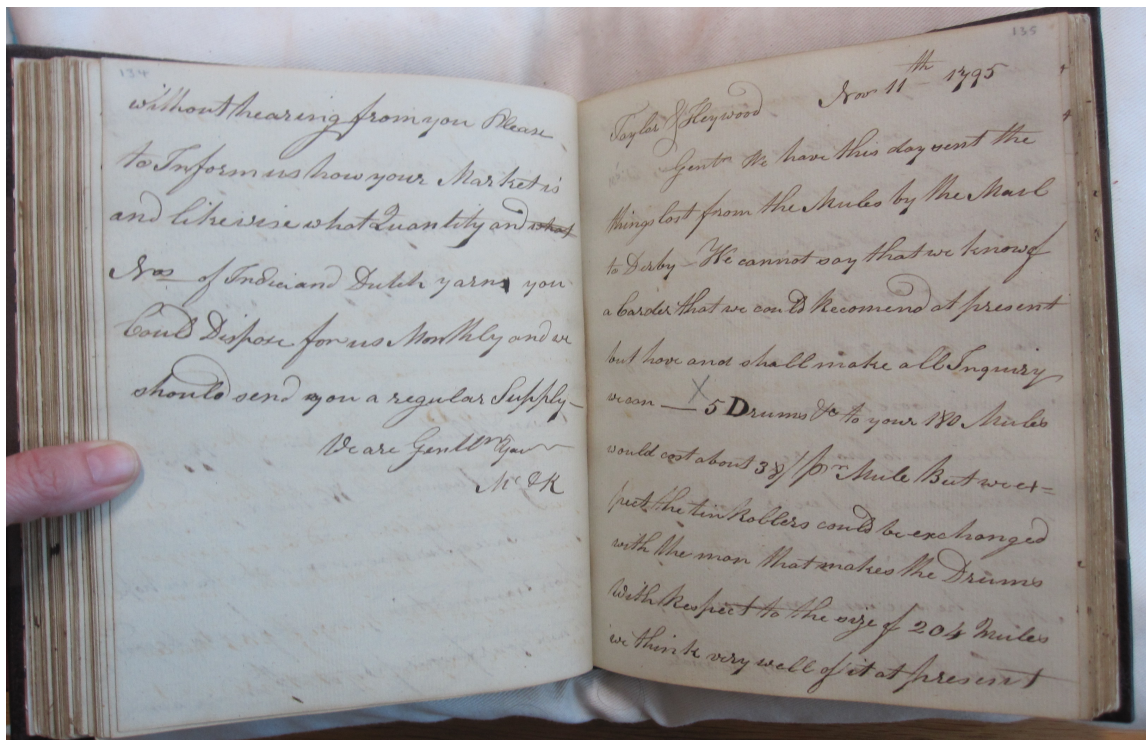 134
without hearing from you Please
to Inform us how your Market is
and likewise what Quantity and what
Nos of India and Dutch yarns you
Could Dispose for us Monthly and we
should send you a regular Supply —
We are Gentlmn Your
McK
135
Novr 11th 1795
Taylor & Heywood
Gentn We have this day sent the
things lost from the Mules by the Mail
to Derby — We cannot say that we know of
a Carder that we could Recomend at present
but have and shall make all Inquiry
we can — X 5 Drums &c to your 180 Mules
would cost about 38/ pr Mule But we ex=
pect the tin Rollers could be exchanged
with the man that makes the Drums
With Respect to the size of 204 Mules
we think very well of it at present